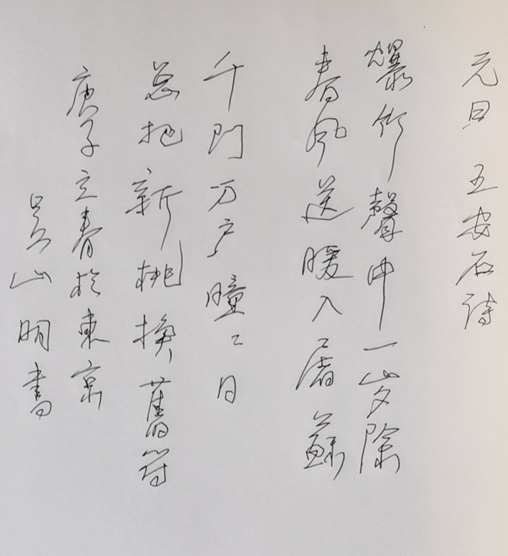 元旦 王安石诗
爆竹聲中一岁除
春风送暖入屠蘇
千門万户曈〻日
总把新桃换舊符
庚子立春於東京
吴山明書